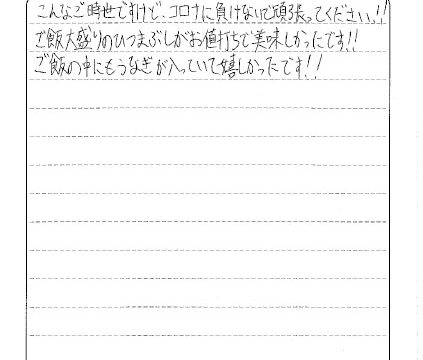 こんなご時世ですけど、コロナに負けないで頑張ってください!!
ご飯大盛りのひつまぶしがお値打ちで美味しかったです!!
ご飯の中にもうなぎが入っていて嬉しかったです!!